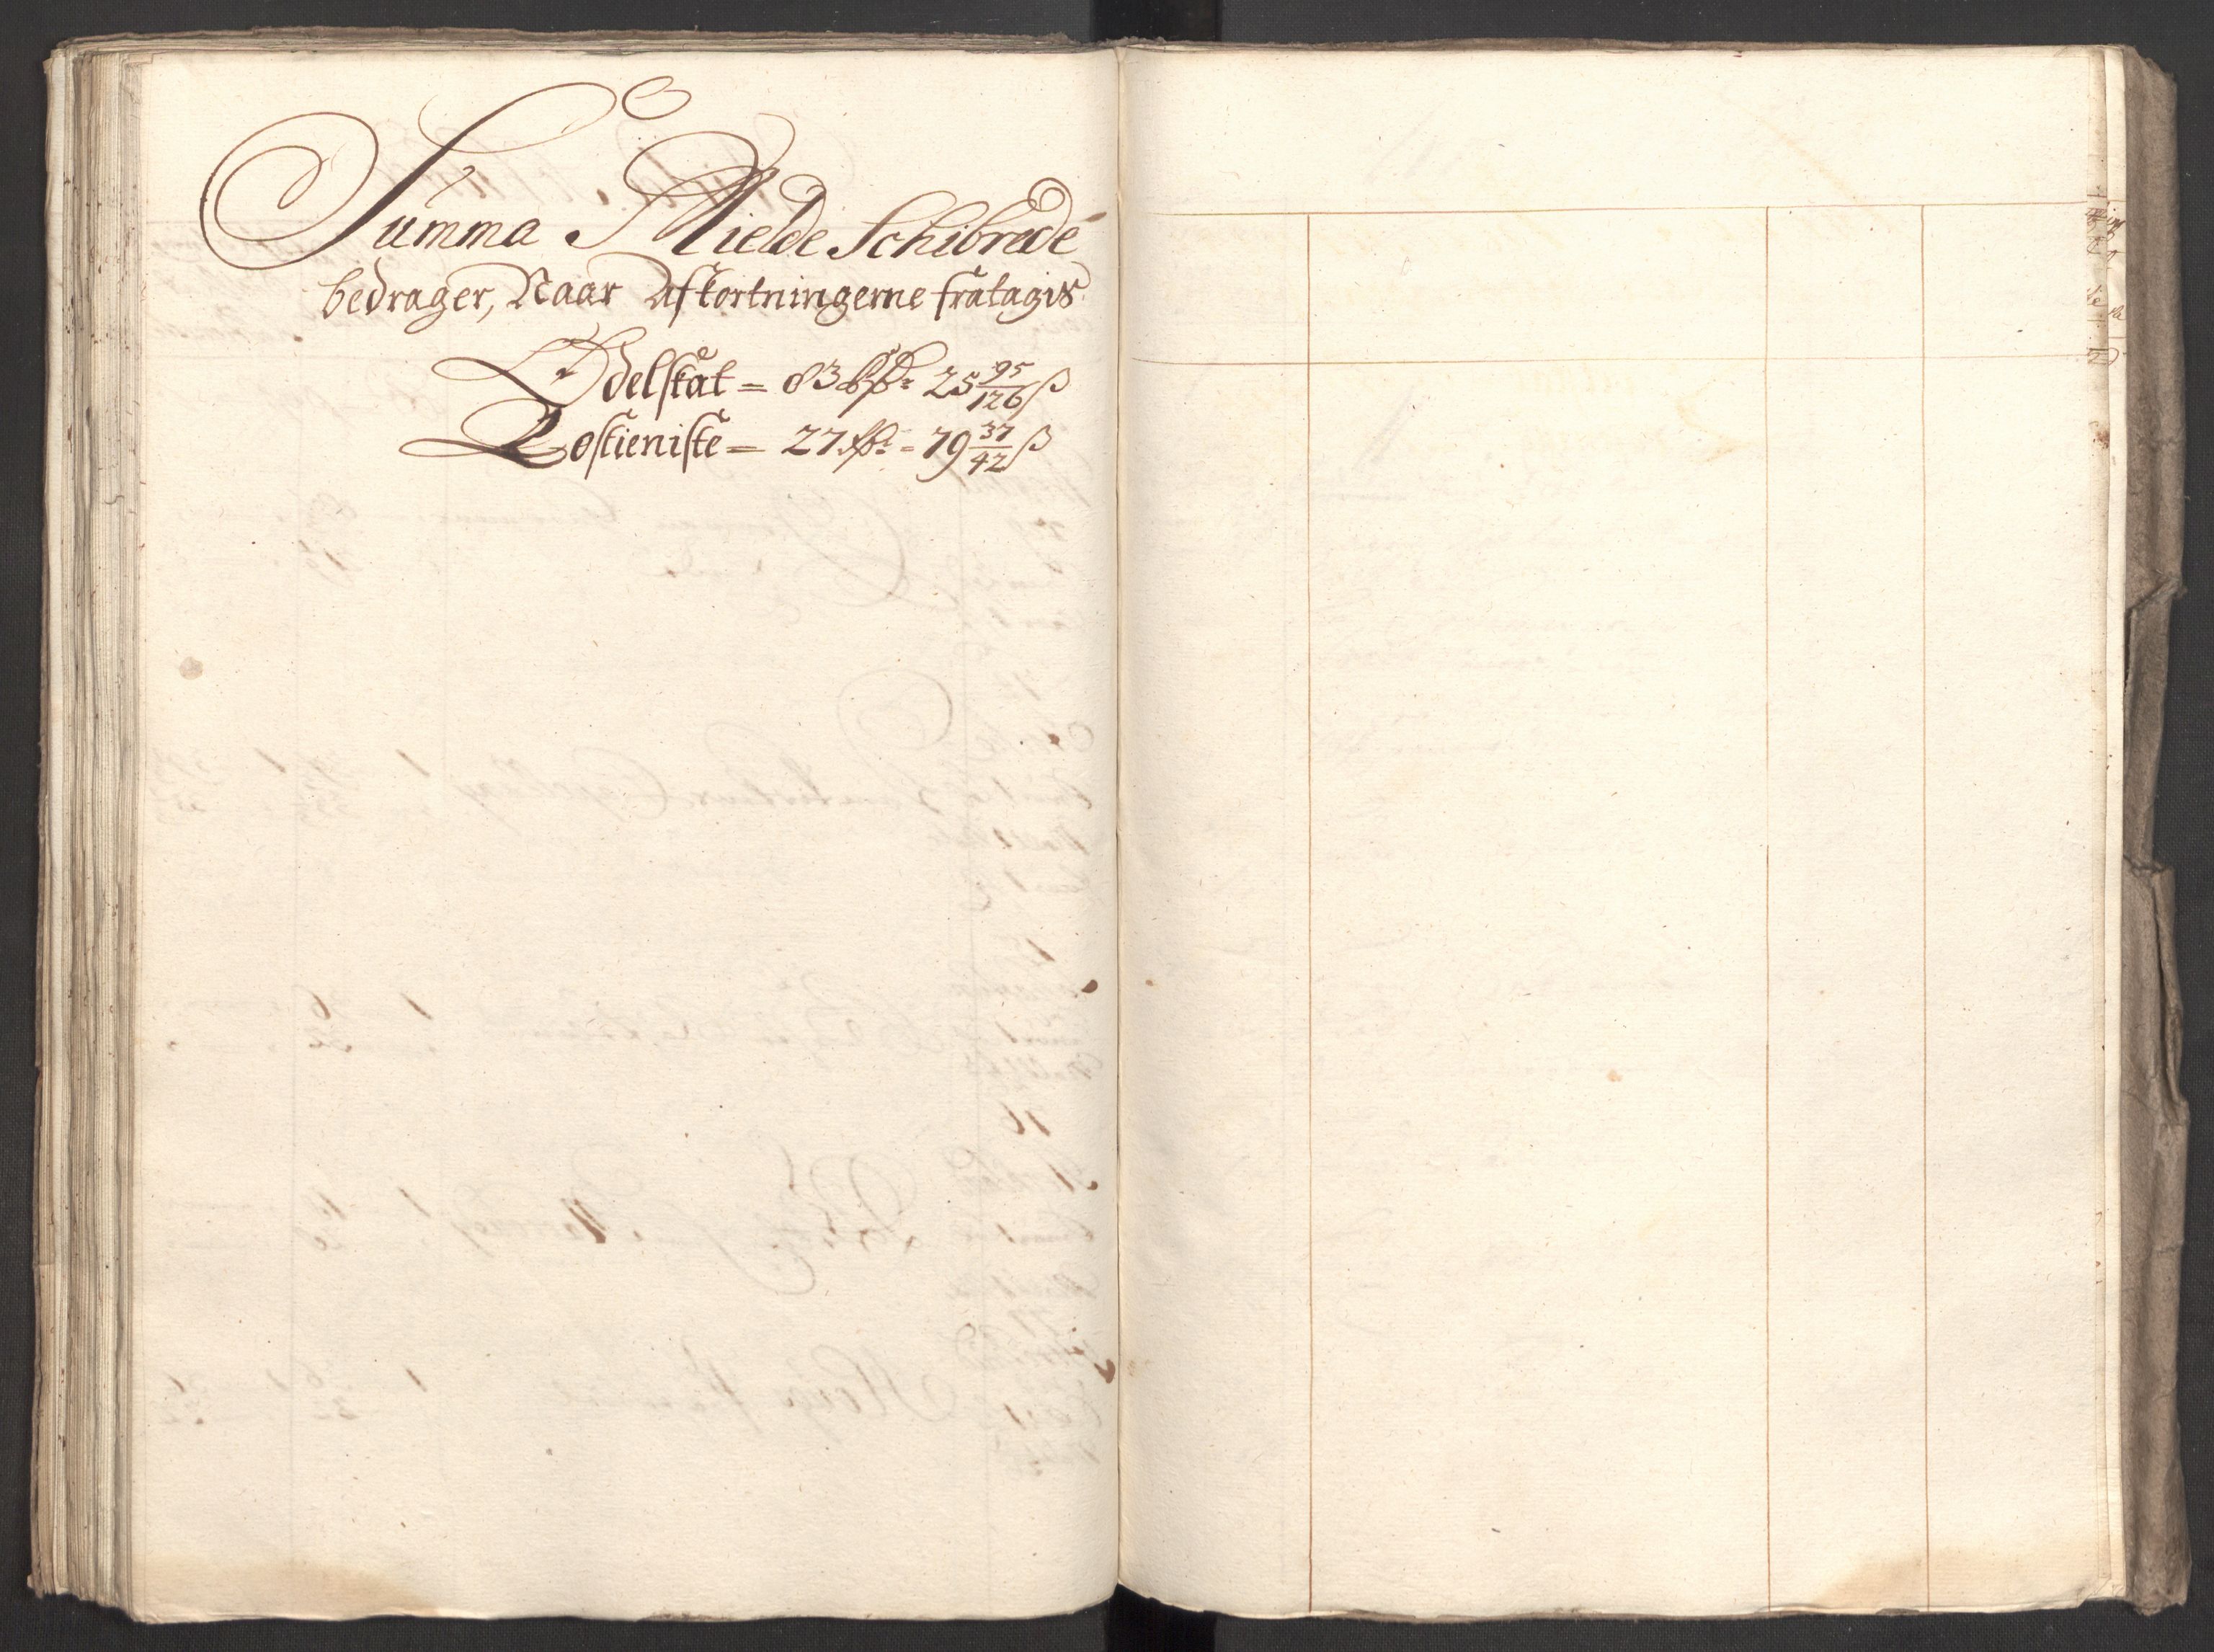 Summa J Mielde Schibrede
bedrager, Naar Afkortningerne fratagis
Odelskat = 83 rdr 25 95/126 ß
Rostieniste = 27 rdr = 79 37/42 ß